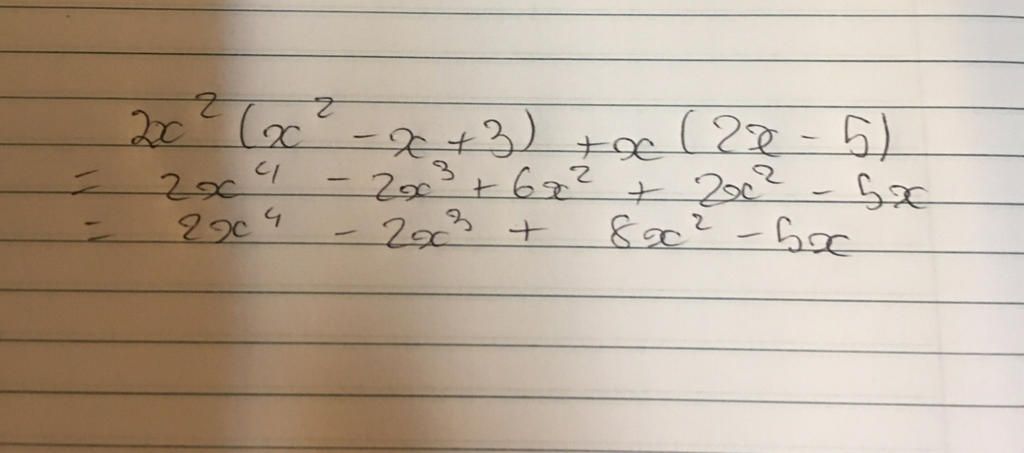 2x² (x² - x + 3) + x (2x - 5)
= 2x⁴ - 2x³ + 6x² + 2x² - 5x
= 2x⁴ - 2x³ + 8x² - 5x